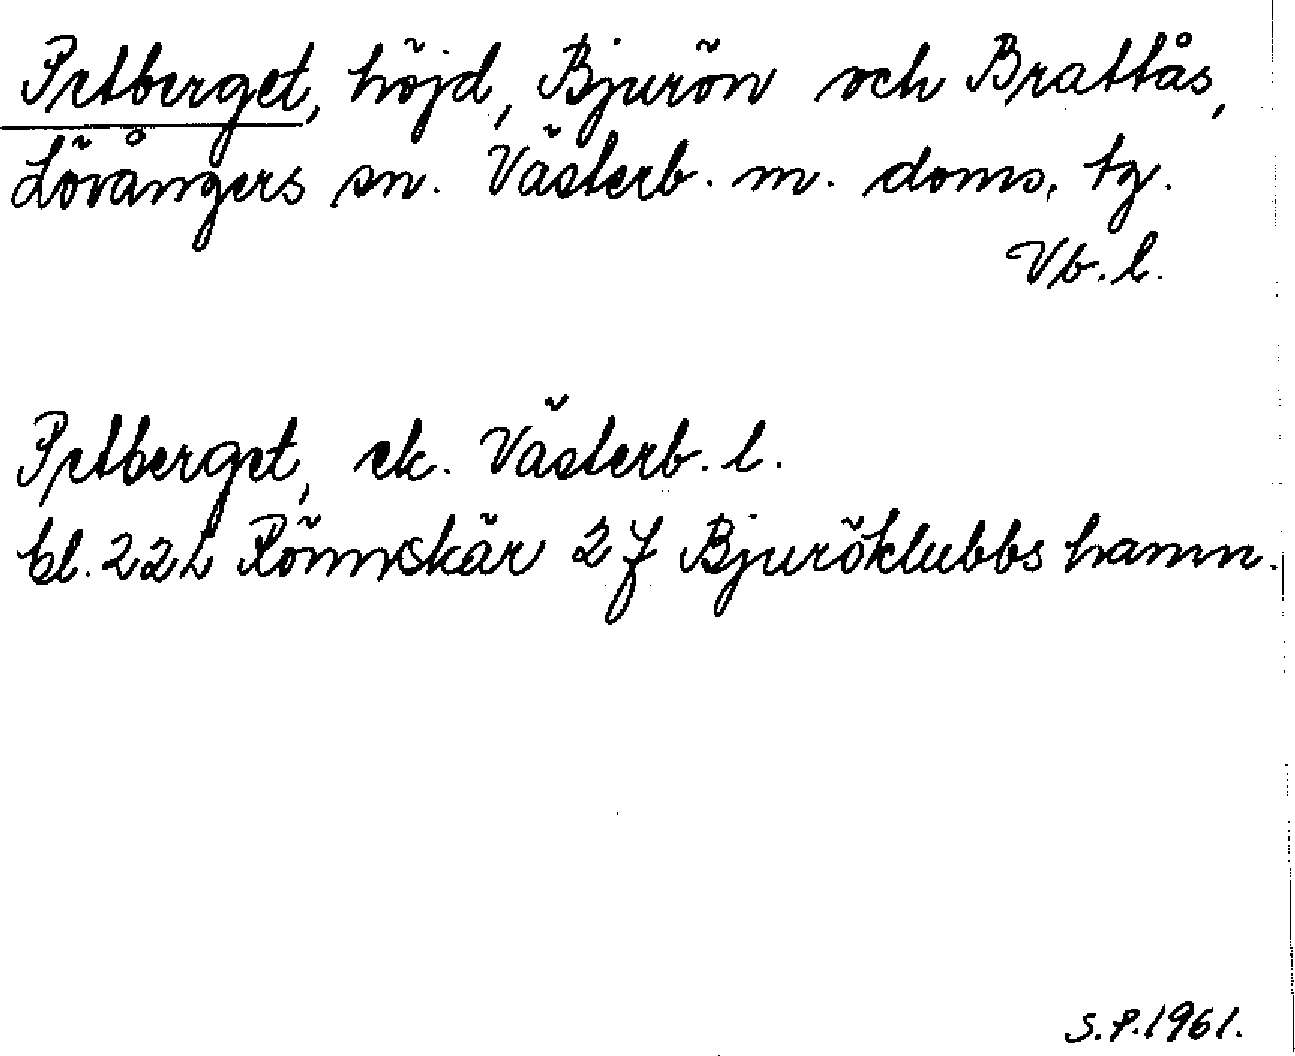 Petberget, höjd, Bjurön och Brattås,
Lövångers sn. Västerb. m. doms. tg.
Vb. l.
Petberget, ek. Västerb. l.
bl. 22L Rönnskär 2f Bjuröklubbs hamn.
S.P.1961.